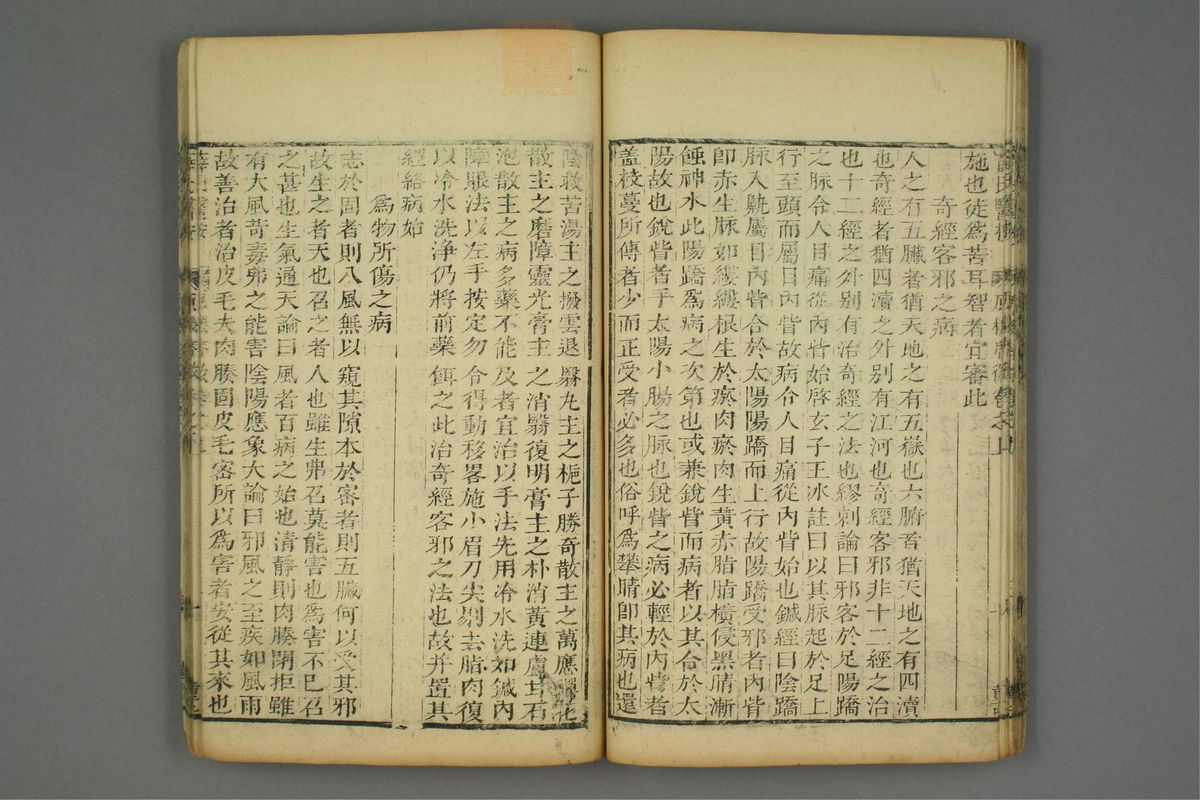 施也徒爲苦耳智者宜審此
奇經客邪之病
人之有五臟者猶天地之有五嶽也六腑者猶天地之有四瀆
也奇經者猶四瀆之外别有江河也奇經客邪非十二經之治
也十二經之外别有治奇經之法也繆刺論曰邪客於足陽蹻
之脉令人目痛從内眥始啓玄子王冰註曰以其脉起於足上
行至頭而屬目内眥故病令人目痛從内眥始也鍼經曰陰蹻
脉入鼽屬目内眥合於太陽陽蹻而上行故陽蹻受邪者内眥
即赤生脉如縷縷根生於瘀肉瘀肉生黄赤脂脂橫侵黑睛漸
蝕神水此陽蹻爲病之次第也或兼銳眥而病者以其合於太
陽故也銳眥者手太陽小腸之脉也銳眥之病必輕於内眥者
蓋枝蔓所傳者少而正受者必多也俗呼爲攀睛即其病也還
陰救苦湯主之撥雲退翳丸主之梔子勝奇散主之萬應蟬花
散主之磨障靈光膏主之消翳復明膏主之朴消黄連盧甘石
泡散主之病多藥不能及者宜治以手法先用冷水洗如鍼内
障眼法以左手按定勿令得動移畧施小眉刀尖剔去脂肉復
以冷水洗淨仍將前藥餌之此治奇經客邪之法也故并置其
經絡病始
爲物所傷之病
志於固者則八風無以窺其隙本於密者則五臟何以受其邪
故生之者天也召之者人也雖生弗召莫能害也爲害不已召
之甚也生氣通天論曰風者百病之始也清靜則肉腠閉拒雖
有大風苛毒弗之能害陰陽應象大論曰邪風之至疾如風雨
故善治者治皮毛夫肉腠固皮毛密所以爲害者安從其來也